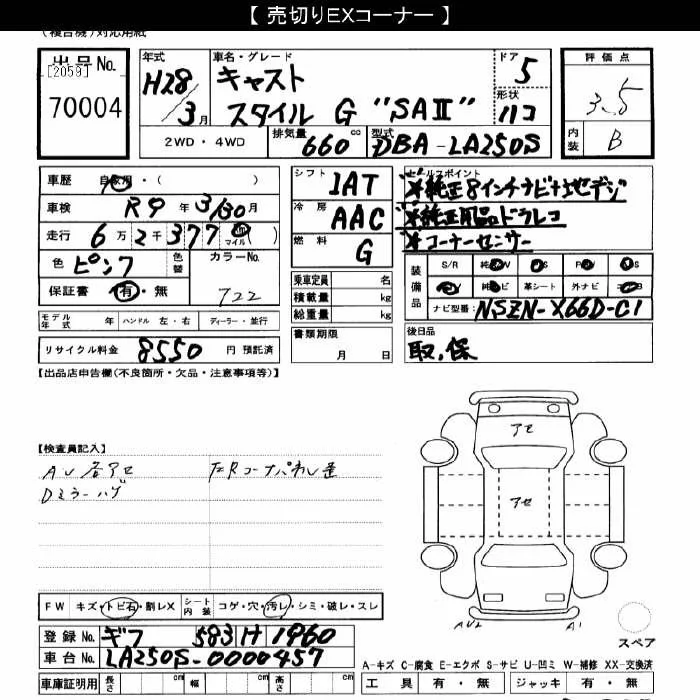 【 売切りEXコーナー 】
(複合機)対応用紙
出品No.
[2059]
70004
年式
H28/3月
車名・グレード
キャスト
スタイル G "SAⅡ"
ドア
5
形状
ハコ
評価点
3.5
内装
B
2WD ・ 4WD
排気量
660 cc
型式
DBA-LA250S
車歴 自家用・( )
車検 R9年3/30月
走行 6万2千377 マイル
色 ピンク
色替
カラーNo.
722
保証書 有・無
シフト
IAT
冷房
AAC
燃料
G
セールスポイント
※純正8インチナビ+地デジ
※純正用品ドラレコ
※コーナーセンサー
装備品
S/R
革シート 外ナビ
ナビ型番: NSZN-X66D-C1
乗車定員 名
積載量 kg
総重量 kg
モデル年式 年 ハンドル 左・右 ディーラー・並行
リサイクル料金 8550 円 預託済
書類期限
月 日
後日品
取,保
【出品店申告欄(不良箇所・欠品・注意事項等)】
【検査員記入】
Dミラーハゲ
アセ
アセ
A1
FW キズ・トビ石・割レX
シート内装 コゲ・穴・汚レ・シミ・破レ・スレ
登録No. ギフ 583 H 1960
車台No. LA250S-0000457
スペア
A-キズ C-腐食 E-エクボ S-サビ U-凹ミ W-補修 XX-交換済
車庫証明用 長さ cm 幅 cm 高さ cm
工具 有・無 ジャッキ 有・無